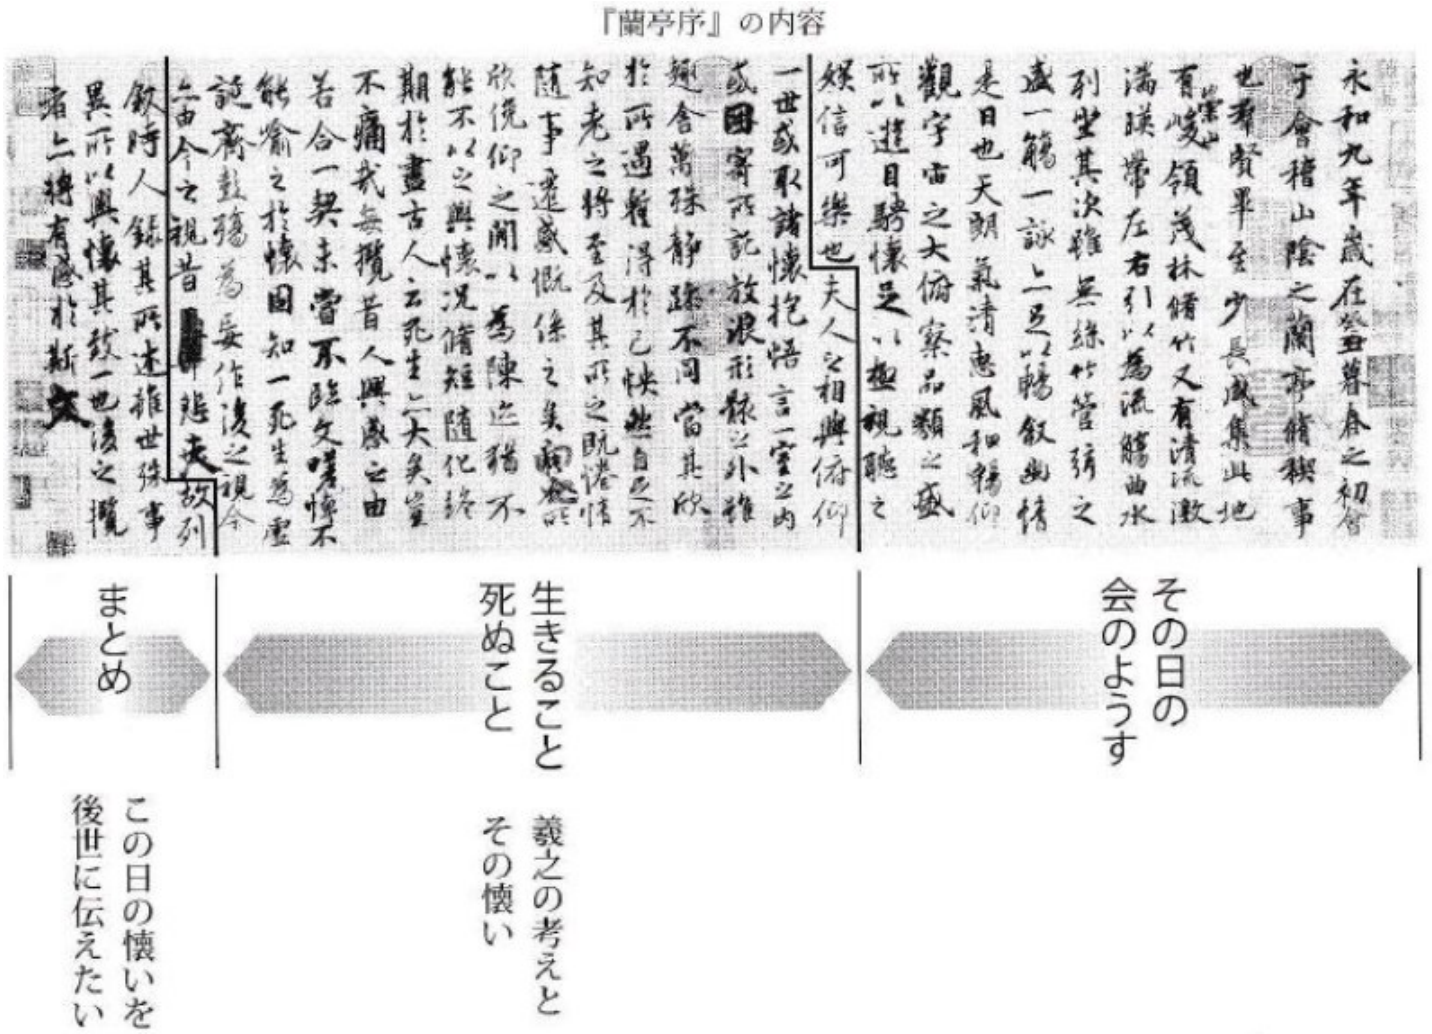 『蘭亭序』の内容
永和九年歲在癸丑暮春之初會
于會稽山陰之蘭亭脩稧事
也羣賢畢至少長咸集此地
有崇山峻領茂林脩竹又有清流激
湍暎帶左右引以為流觴曲水
列坐其次雖無絲竹管弦之
盛一觴一詠亦足以暢敘幽情
是日也天朗氣清惠風和暢仰
觀宇宙之大俯察品類之盛
所以遊目騁懷足以極視聽之
娛信可樂也夫人之相與俯仰
一世或取諸懷抱悟言一室之內
或因寄所託放浪形骸之外雖
趣舍萬殊靜躁不同當其欣
於所遇蹔得於己怏然自足不
知老之將至及其所之既惓情
隨事遷感慨係之矣向之所
欣俛仰之閒以為陳迹猶不
能不以之興懷況脩短隨化終
期於盡古人云死生亦大矣豈
不痛哉每攬昔人興感之由
若合一契未嘗不臨文嗟悼不
能喻之於懷固知一死生為虛
誕齊彭殤為妄作後之視今
亦由今之視昔悲夫故列
敘時人錄其所述雖世殊事
異所以興懷其致一也後之攬
者亦將有感於斯文
その日の
会のようす
生きること
死ぬこと
羲之の考えと
その懐い
まとめ
この日の懐いを
後世に伝えたい